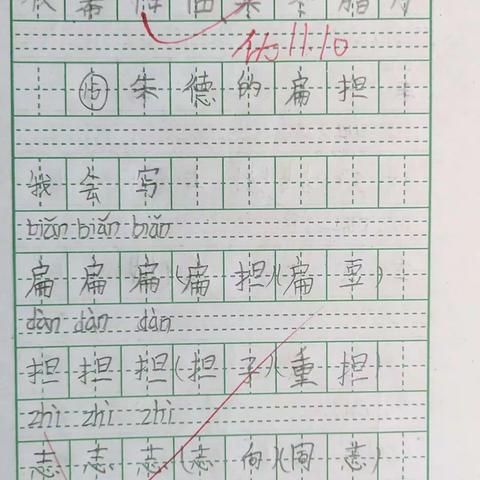 11.10
⑮朱德的扁担
我会写
biǎn biǎn biǎn
扁扁扁(扁担)(扁豆)
dàn dàn dàn
担担担(担子)(重担)
zhì zhì zhì
志志志(志向)(同志)